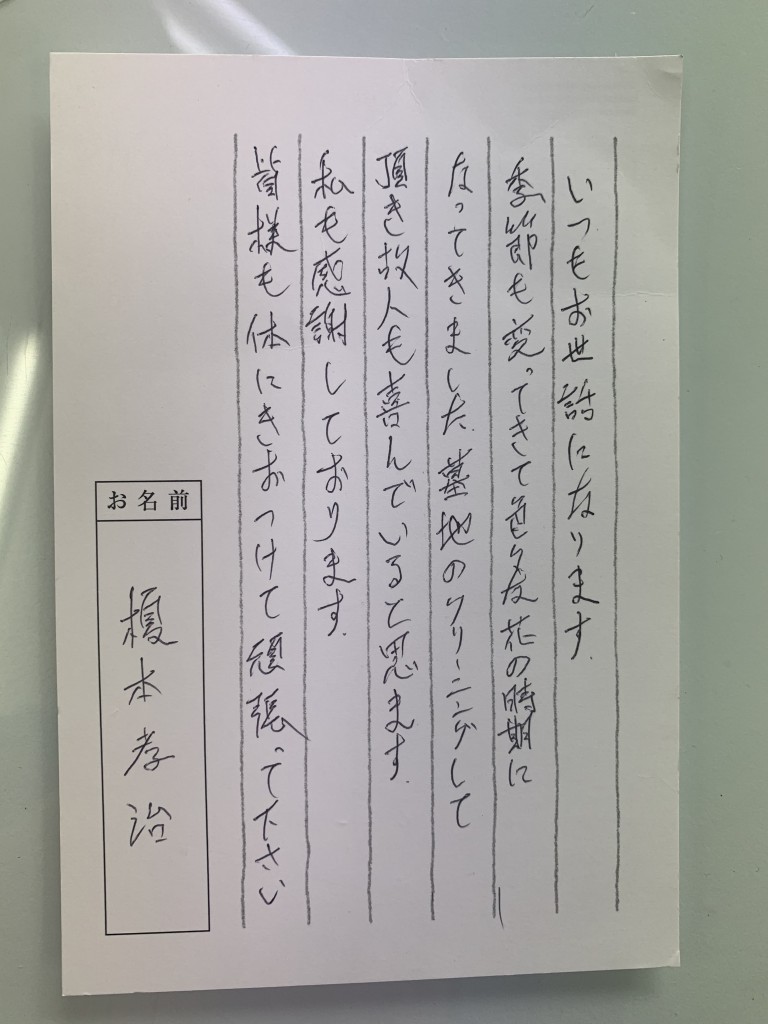 いつもお世話になります.
季節も変ってきて色々な花の時期に
なってきました.墓地のクリーニングして
頂き故人も喜んでいると思ます.
私も感謝しております.
皆様も体にきおつけて頑張って下さい
お名前
榎本孝治